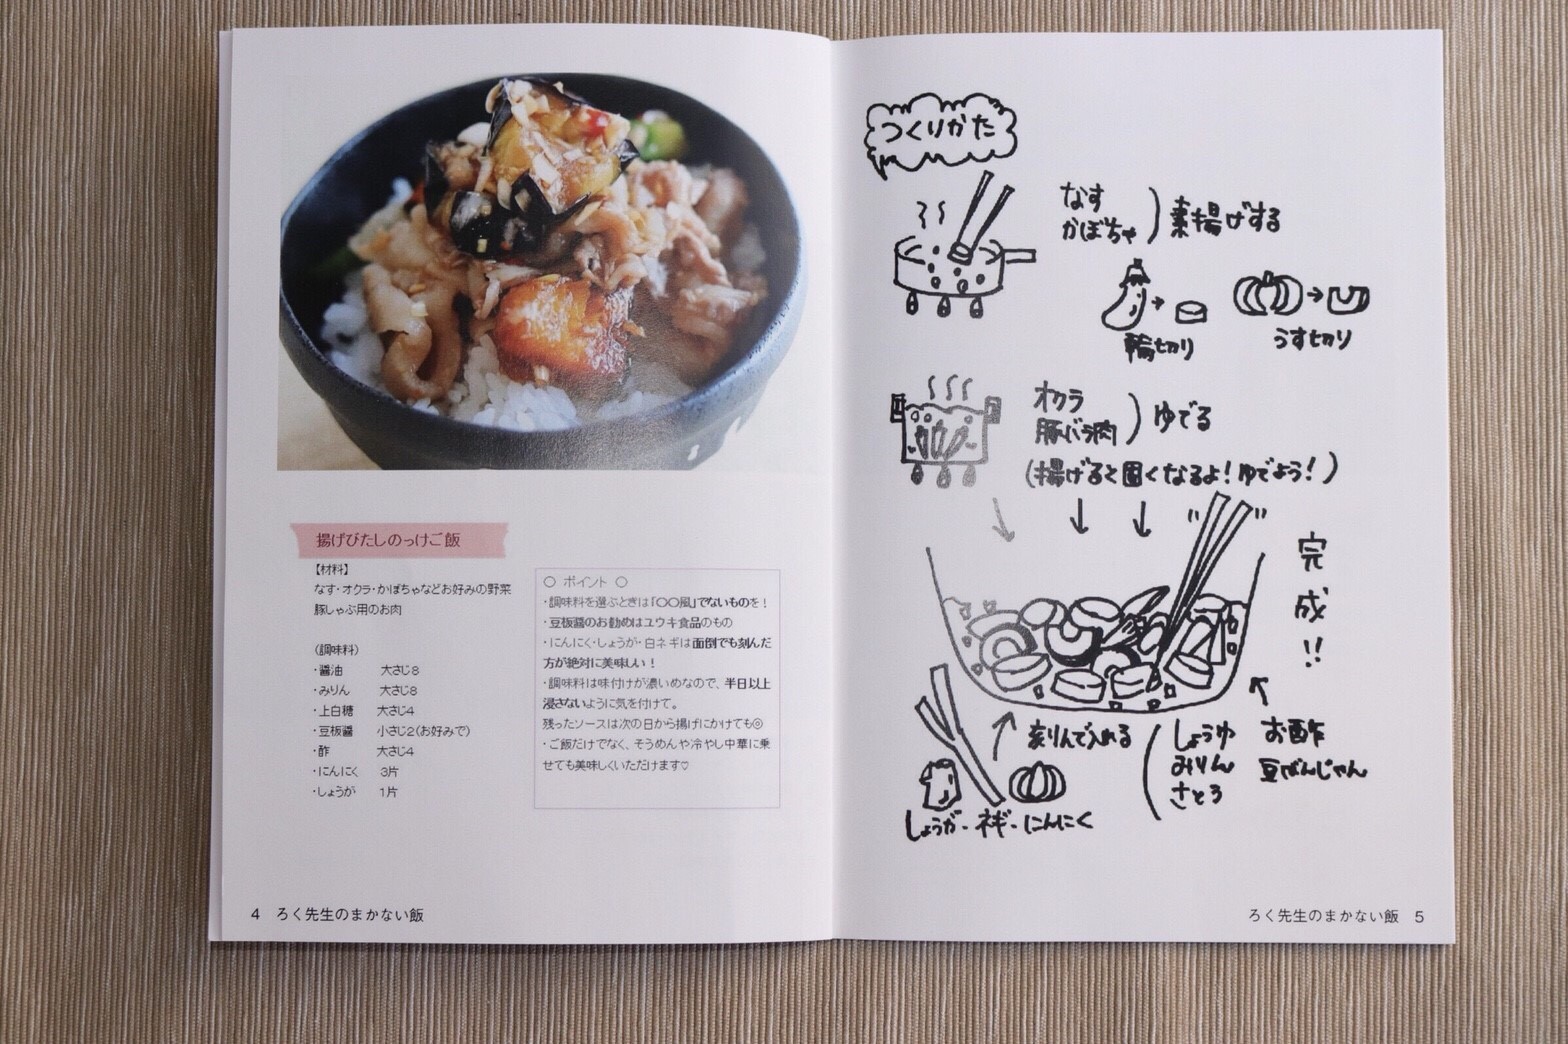 揚げびたしのっけご飯
【材料】
なす・オクラ・かぼちゃなどお好みの野菜
豚しゃぶ用のお肉
(調味料)
・醤油 大さじ8
・みりん 大さじ8
・上白糖 大さじ4
・豆板醤 小さじ2(お好みで)
・酢 大さじ4
・にんにく 3片
・しょうが 1片
○ ポイント ○
・調味料を選ぶときは「〇〇風」でないものを!
・豆板醤のお勧めはユウキ食品のもの
・にんにく・しょうが・白ネギは面倒でも刻んだ
方が絶対に美味しい!
・調味料は味付けが濃いめなので、半日以上
浸さないように気を付けて。
残ったソースは次の日から揚げにかけても◎
・ご飯だけでなく、そうめんや冷やし中華に乗
せても美味しくいただけます♡
4 ろく先生のまかない飯
つくりかた
なす
かぼちゃ
)素揚げする
輪切り
うす切り
オクラ
豚バラ肉
)ゆでる
(揚げると固くなるよ!ゆでよう!)
完成!!
刻んで入れる
しょうが・ネギ・にんにく
しょうゆ
みりん
さとう
お酢
豆ばんじゃん
ろく先生のまかない飯 5